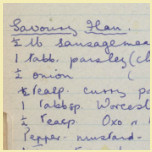 Savoury Flan.
½ lb sausagemea
1 tabb. parsley (ch
½ onion (
½ teasp. curry po
1 tabbsp. Worcest
½ teasp. Oxo
Pepper - mustard -